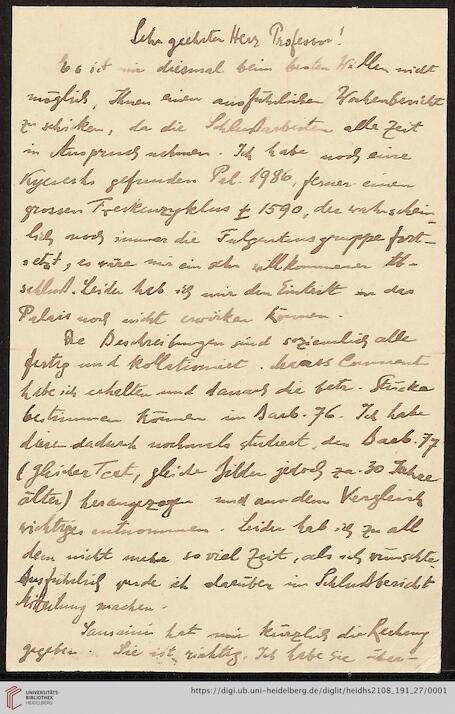 Sehr geehrter Herr Professor!
Es ist mir diesmal beim besten Willen nicht
möglich, Ihnen einen ausführlichen Wochenbericht
zu schicken, da die Schlußarbeiten alle Zeit
in Anspruch nehmen. Ich habe noch eine
gefunden Pal. 1986, ferner einen
grossen Freskenzyklus ± 1590, der wahrschein-
lich noch immer die Fulgentiusgruppe fort-
setzt, es wäre mir ein sehr willkommener Ab-
schluß. Leider hab ich mir den Eintritt in das
Palais noch nicht erwirken können.
Die Beschreibungen sind so ziemlich alle
fertig und kollationiert. Maass Comment
habe ich erhalten und danach die betr. Stücke
bestimmen können im Barb. 76. Ich habe
diesen dadurch nochmals studiert, den Barb. 77
(gleicher Text, gleiche Bilder jedoch za. 30 Jahre
älter) herangezogen und aus dem Vergleich
wichtiges entnommen. Leider hab ich zu all
dem nicht mehr so viel Zeit, als ich wünschte
Ausführlich werde ich darüber im Schlußbericht
Mitteilung machen.
Sansaini hat mir kürzlich die Rechnung
gegeben. Sie ist richtig. Ich habe sie über-
UNIVERSITÄTS-
BIBLIOTHEK
HEIDELBERG
https://digi.ub.uni-heidelberg.de/diglit/heidhs2108_191_27/0001